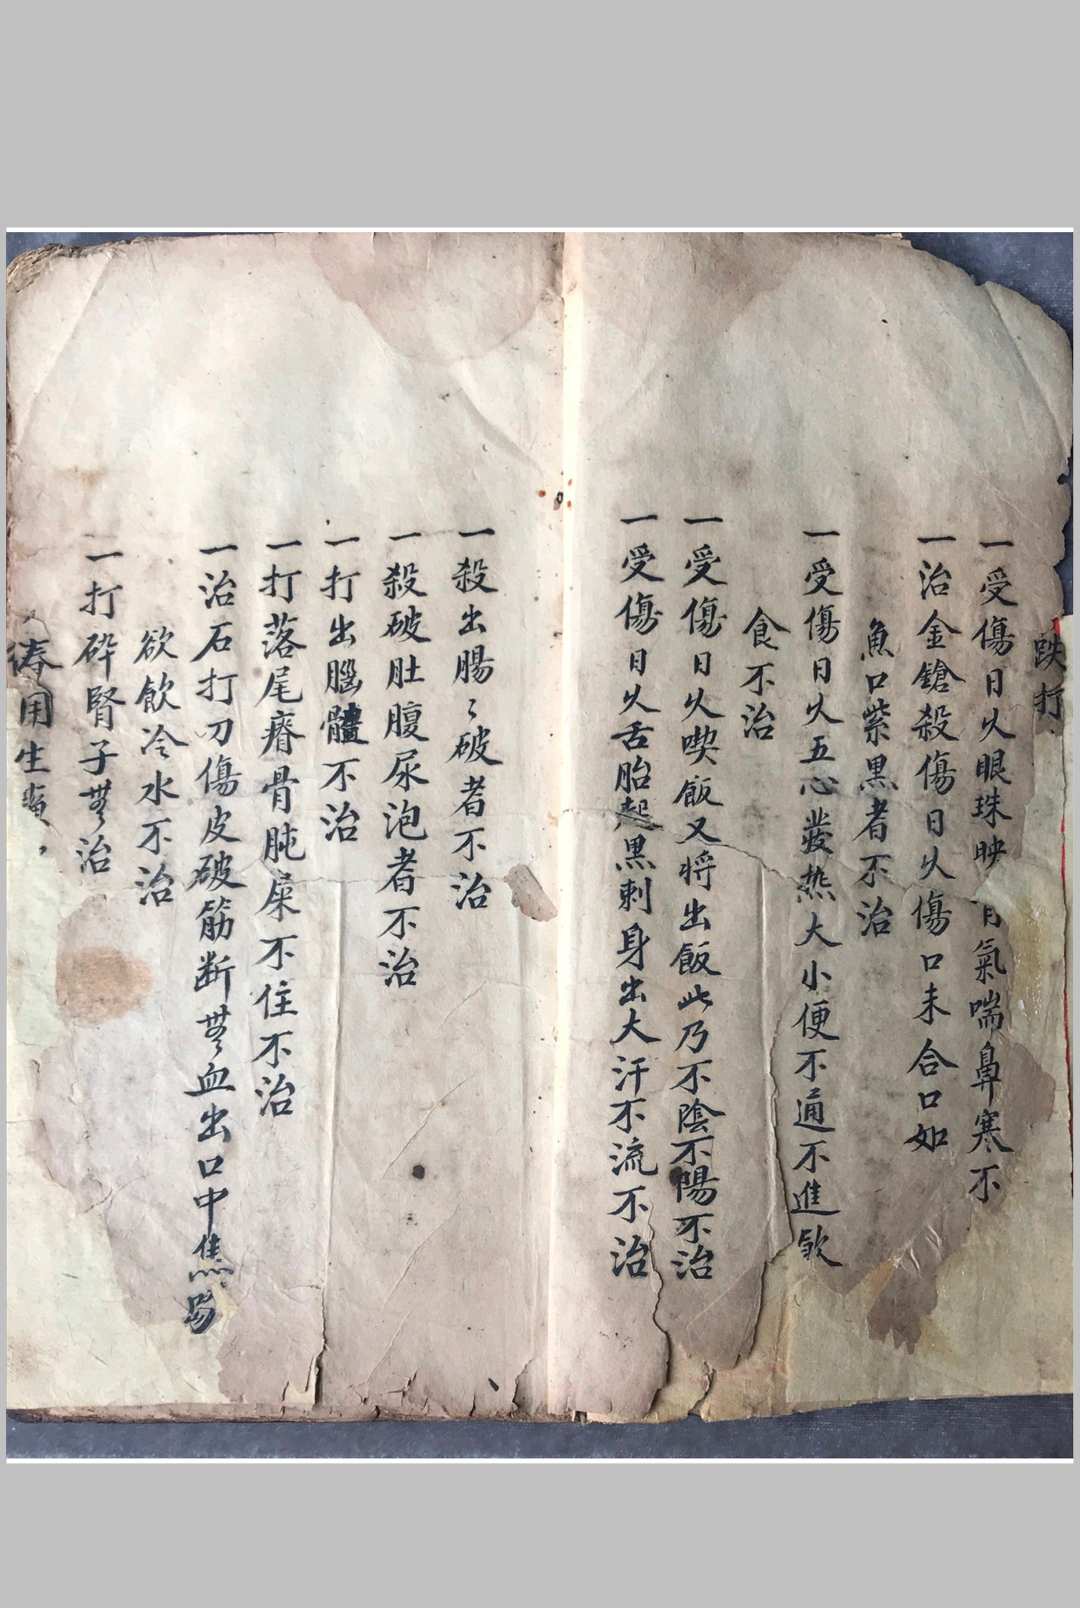 跌打
一受傷日久眼珠映
氣喘鼻寒不
一治金鎗殺傷日久傷口未合口如
魚口紫黑者不治
一受傷日久五心發热大小便不通不進飲
食不治
一受傷日久喫飯又將出飯此乃不陰不陽不治
一受傷日久舌胎起黑刺身出大汗不流不治
一殺出腸〻破者不治
一殺破肚腹尿泡者不治
一打出腦髓不治
一打落尾瘠骨肫屎不住不治
一治石打刀傷皮破筋断無血出口中焦
欲飲冷水不治
一打碎腎子無治
用生